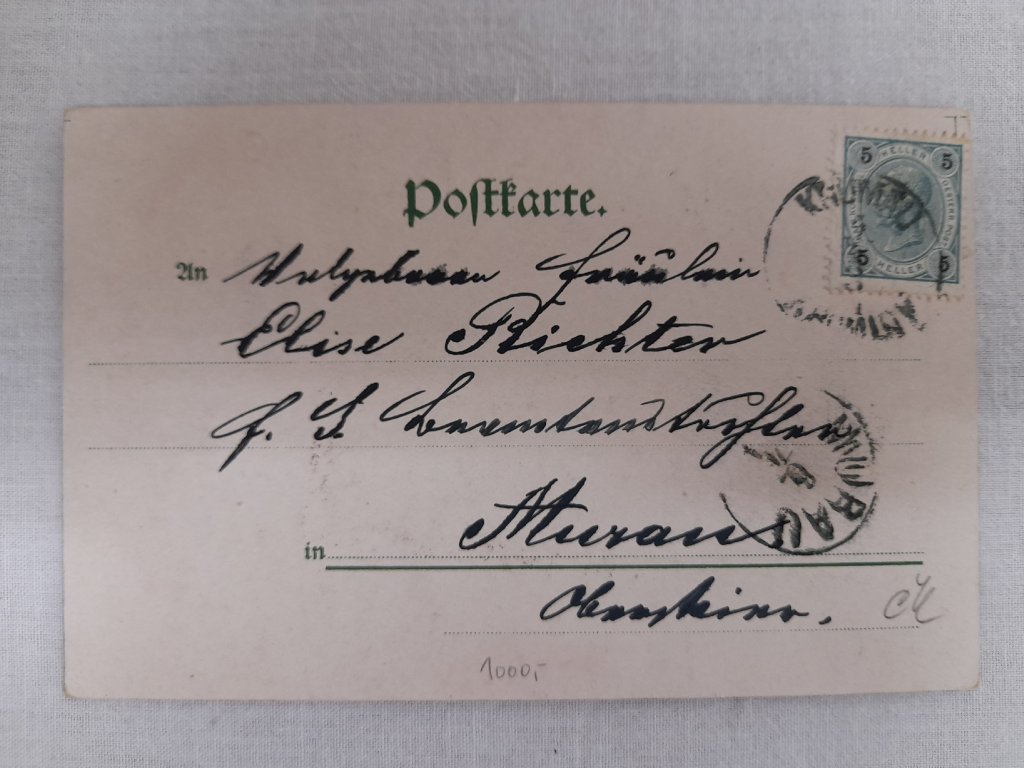 Postkarte.
5 HELLER 5
5 HELLER 5
KRUMAU
An Wolgeboren Fräulein
Elise Richter
k. k. Beamtenstochter
MURAU
in Murau
Obersteier.
1000,-